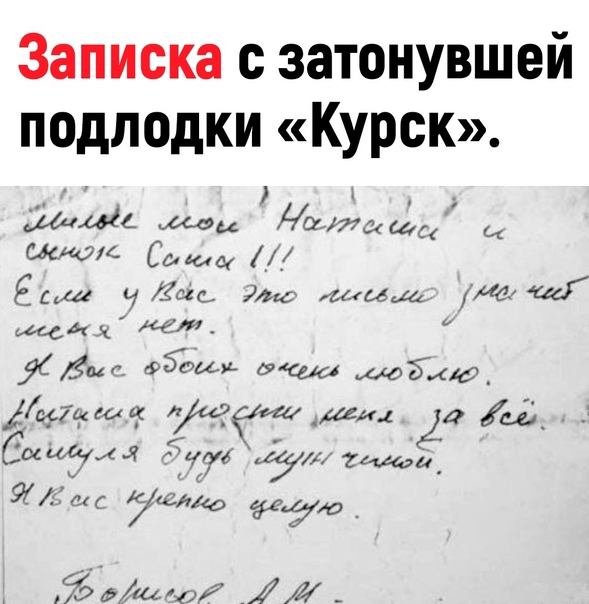 Записка с затонувшей
подлодки «Курск».
Милые мои Наташа и
сынок Саша !!!
Если у Вас это письмо значит
меня нет.
Я Вас обоих очень люблю.
Наташа прости меня за всё.
Сашуля будь мужчиной.
Я Вас крепко целую.
Борисов А.М.